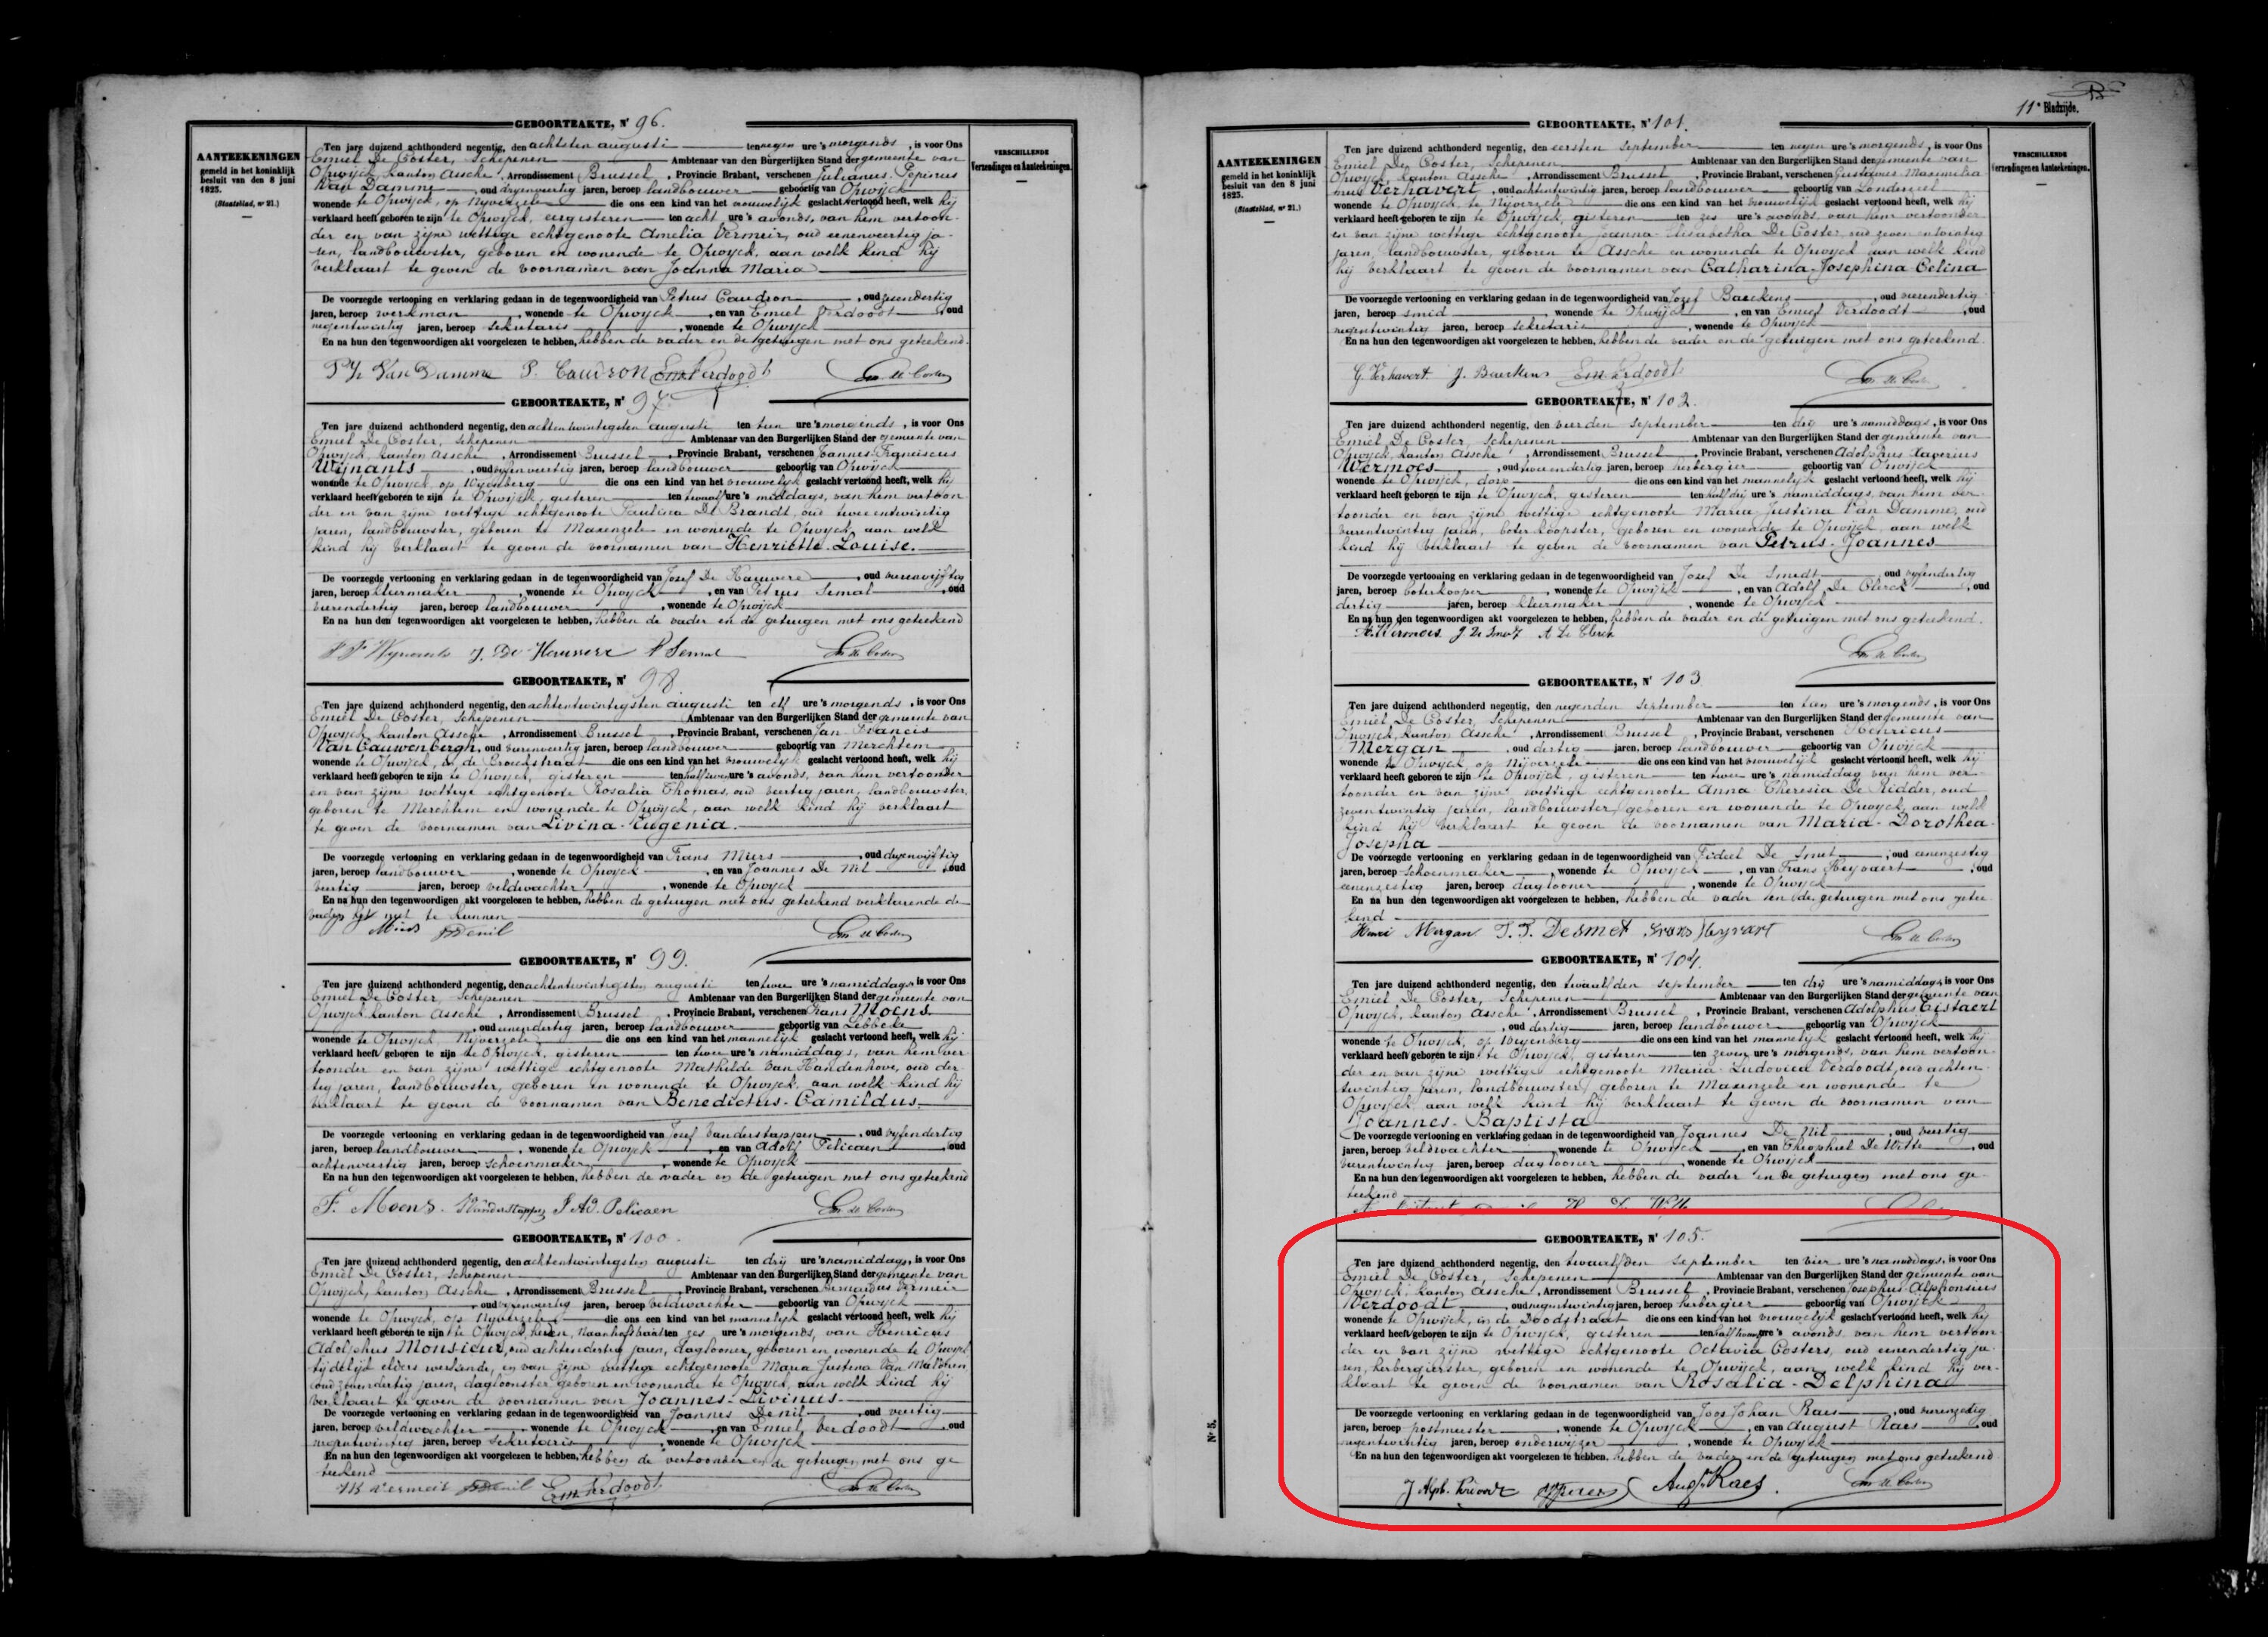 GEBOORTEAKTE, Nr 96.
AANTEEKENINGEN
gemeld in het koninklijk
besluit van den 8 juni
1823.
(Staatsblad, nr 21.)
VERSCHILLENDE
Verzendingen en Aanteekeningen.
Ten jare duizend achthonderd negentig, den achtsten augusti ten negen ure 's morgends, is voor Ons
Emiel De Coster, Schepenen Ambtenaar van den Burgerlijken Stand der gemeente van
Opwijck, kanton Assche, Arrondissement Brussel, Provincie Brabant, verschenen Julianus Pepinus
Van Damme, oud dryenveertig jaren, beroep landbouwer geboortig van Opwijck
wonende te Opwijck, op Nyverzele die ons een kind van het vrouwelijk geslacht vertoond heeft, welk hij
verklaard heeft geboren te zijn te Opwijck, eergisteren ten acht ure 's avonds, van hem vertoon-
der en van zijne wettige echtgenoote Amelia Vermeir, oud eenenveertig ja-
ren, landbouwster, geboren en wonende te Opwijck, aan welk kind hij
verklaart te geven de voornamen van Joanna Maria
De voorzegde vertooning en verklaring gedaan in de tegenwoordigheid van Petrus Caudron, oud zesendertig
jaren, beroep werkman, wonende te Opwijck, en van Emiel Verdoodt, oud
negentwintig jaren, beroep sekretaris, wonende te Opwijck
En na hun den tegenwoordigen akt voorgelezen te hebben, hebben de vader en de getuigen met ons geteekend.
Van Damme P. Caudron Em. Verdoodt Em. De Coster
GEBOORTEAKTE, Nr 97.
Ten jare duizend achthonderd negentig, den achtentwintigsten augusti ten tien ure 's morgends, is voor Ons
Emiel De Coster, Schepenen Ambtenaar van den Burgerlijken Stand der gemeente van
Opwijck, kanton Assche, Arrondissement Brussel, Provincie Brabant, verschenen Joannes Franciscus
Wijnants, oud vyfenveertig jaren, beroep landbouwer geboortig van Opwijck
wonende te Opwijck, op Wijenberg die ons een kind van het vrouwelijk geslacht vertoond heeft, welk hij
verklaard heeft geboren te zijn te Opwijck, gisteren ten twaalf ure 's middags, van hem vertoon
der en van zijne wettige echtgenoote Paulina De Brandt, oud tweeentwintig
jaren, landbouwster, geboren te Maxenzele en wonende te Opwijck, aan welk
kind hij verklaart te geven de voornamen van Henriette-Louise.
De voorzegde vertooning en verklaring gedaan in de tegenwoordigheid van Jozef De Hauwere, oud vierenvijftig
jaren, beroep kleermaker, wonende te Opwijck, en van Petrus Semal, oud
vierendertig jaren, beroep landbouwer, wonende te Opwijck
En na hun den tegenwoordigen akt voorgelezen te hebben, hebben de vader en de getuigen met ons geteekend
J. De Hauwere P Semal Em. De Coster
GEBOORTEAKTE, Nr 98
Ten jare duizend achthonderd negentig, den achtentwintigsten augusti ten elf ure 's morgends, is voor Ons
Emiel De Coster, Schepenen Ambtenaar van den Burgerlijken Stand der gemeente van
Opwijck kanton Assche, Arrondissement Brussel, Provincie Brabant, verschenen Jan Francis
Van Cauwenbergh, oud vierenveertig jaren, beroep landbouwer geboortig van Merchtem
wonende te Opwijck, in de straat die ons een kind van het vrouwelijk geslacht vertoond heeft, welk hij
verklaard heeft geboren te zijn te Opwijck, gisteren ten half zeven ure 's avonds, van hem vertoonder
en van zijne wettige echtgenoote Rosalia Thomas, oud veertig jaren, landbouwster,
geboren te Merchtem en wonende te Opwijck, aan welk kind hij verklaart
te geven de voornamen van Livina-Eugenia.
De voorzegde vertooning en verklaring gedaan in de tegenwoordigheid van Frans Miers, oud dryenvijftig
jaren, beroep landbouwer, wonende te Opwijck, en van Joannes De Nil, oud
veertig jaren, beroep veldwachter, wonende te Opwijck
En na hun den tegenwoordigen akt voorgelezen te hebben, hebben de getuigen met ons geteekend verklarende de
vader het niet te kunnen
Miers Denil Em. De Coster
GEBOORTEAKTE, Nr 99.
Ten jare duizend achthonderd negentig, den achtentwintigsten augusti ten twee ure 's namiddags, is voor Ons
Emiel De Coster, Schepenen Ambtenaar van den Burgerlijken Stand der gemeente van
Opwijck kanton Assche, Arrondissement Brussel, Provincie Brabant, verschenen Frans Moens
, oud eenendertig jaren, beroep landbouwer geboortig van Lebbeke
wonende te Opwijck, Nijverzele die ons een kind van het mannelijk geslacht vertoond heeft, welk hij
verklaard heeft geboren te zijn te Opwijck, gisteren ten twee ure 's namiddags, van hem ver
toonder en van zijne wettige echtgenoote Mathilde Van Handenhove, oud der-
tig jaren, landbouwster, geboren en wonende te Opwijck, aan welk kind hij
verklaart te geven de voornamen van Benedictus-Camildus.
De voorzegde vertooning en verklaring gedaan in de tegenwoordigheid van Jozef Vanderstappen, oud vyfendertig
jaren, beroep landbouwer, wonende te Opwijck, en van Adolf Pelicaen, oud
achtenveertig jaren, beroep schoenmaker, wonende te Opwijck
En na hun den tegenwoordigen akt voorgelezen te hebben, hebben de vader en de getuigen met ons geteekend
F. Moens. Vanderstappen Ad. Pelicaen Em. De Coster
GEBOORTEAKTE, Nr 100.
Ten jare duizend achthonderd negentig, den achtentwintigsten augusti ten drij ure 's namiddags, is voor Ons
Emiel De Coster, Schepenen Ambtenaar van den Burgerlijken Stand der gemeente van
Opwijck, kanton Assche, Arrondissement Brussel, Provincie Brabant, verschenen Vermeir
, oud jaren, beroep veldwachter geboortig van Opwijck
wonende te Opwijck, op Nyverzele die ons een kind van het mannelijk geslacht vertoond heeft, welk hij
verklaard heeft geboren te zijn te Opwijck, heden, ten zes ure 's morgends, van Henricus
Adolphus Monsieur, oud achtendertig jaren, daglooner, geboren en wonende te Opwijck
tijdelijk elders werkende, en van zijne wettige echtgenoote Maria Justina Van Malderen
oud zevendertig jaren, dagloonster, geboren en wonende te Opwijck, aan welk kind hij
verklaart te geven de voornamen van Joannes-Livinus.
De voorzegde vertooning en verklaring gedaan in de tegenwoordigheid van Joannes Denil, oud veertig
jaren, beroep veldwachter, wonende te Opwijck, en van Emiel Verdoodt, oud
negentwintig jaren, beroep sekretaris, wonende te Opwijck
En na hun den tegenwoordigen akt voorgelezen te hebben, hebben de vertoonder en de getuigen met ons ge
teekend
Vermeir Denil Em. Verdoodt Em. De Coster
11e Bladzijde.
GEBOORTEAKTE, Nr 101.
AANTEEKENINGEN
gemeld in het koninklijk
besluit van den 8 juni
1823.
(Staatsblad, nr 21.)
VERSCHILLENDE
Verzendingen en Aanteekeningen.
Ten jare duizend achthonderd negentig, den eersten september ten negen ure 's morgends, is voor Ons
Emiel De Coster, Schepenen Ambtenaar van den Burgerlijken Stand der gemeente van
Opwijck, kanton Assche, Arrondissement Brussel, Provincie Brabant, verschenen Gustavus Maximilia
nus Verhavert, oud achtentwintig jaren, beroep landbouwer geboortig van Londerzeel
wonende te Opwijck, te Nijverzele die ons een kind van het vrouwelijk geslacht vertoond heeft, welk hij
verklaard heeft geboren te zijn te Opwijck, gisteren ten zes ure 's avonds, van hem vertoonder
en van zijne wettige echtgenoote Joanna-Elisabetha De Coster, oud zeven entwintig
jaren, landbouwster, geboren te Assche en wonende te Opwijck aan welk kind
hij verklaart te geven de voornamen van Catharina-Josephina Celina
De voorzegde vertooning en verklaring gedaan in de tegenwoordigheid van Jozef Baeckens, oud vierendertig
jaren, beroep smid, wonende te Opwijck, en van Emiel Verdoodt, oud
negentwintig jaren, beroep sekretaris, wonende te Opwijck
En na hun den tegenwoordigen akt voorgelezen te hebben, hebben de vader en de getuigen met ons geteekend.
G. Verhavert J. Baeckens Em. Verdoodt Em. De Coster
GEBOORTEAKTE, Nr 102.
Ten jare duizend achthonderd negentig, den vierden september ten drij ure 's namiddags, is voor Ons
Emiel De Coster, Schepenen Ambtenaar van den Burgerlijken Stand der gemeente van
Opwijck, kanton Assche, Arrondissement Brussel, Provincie Brabant, verschenen Adolphus Xaverius
Wermoes, oud tweeendertig jaren, beroep herbergier geboortig van Opwijck
wonende te Opwijck, dorp die ons een kind van het mannelijk geslacht vertoond heeft, welk hij
verklaard heeft geboren te zijn te Opwijck, gisteren ten half drij ure 's namiddags, van hem ver
toonder en van zijne wettige echtgenoote Maria Justina Van Damme, oud
vierentwintig jaren, boterkoopster, geboren en wonende te Opwijck, aan welk
kind hij verklaart te geven de voornamen van Petrus-Joannes
De voorzegde vertooning en verklaring gedaan in de tegenwoordigheid van Jozef De Smedt, oud vyfendertig
jaren, beroep boterkooper, wonende te Opwijck, en van Adolf De Clerck, oud
dertig jaren, beroep kleermaker, wonende te Opwijck
En na hun den tegenwoordigen akt voorgelezen te hebben, hebben de vader en de getuigen met ons geteekend.
A. Wermoes J. De Smedt A. De Clerck
Em. De Coster
GEBOORTEAKTE, Nr 103
Ten jare duizend achthonderd negentig, den negenden september ten tien ure 's morgends, is voor Ons
Emiel De Coster, Schepenen Ambtenaar van den Burgerlijken Stand der gemeente van
Opwijck, kanton Assche, Arrondissement Brussel, Provincie Brabant, verschenen Henricus
Mergan, oud dertig jaren, beroep landbouwer geboortig van Opwijck
wonende te Opwijck, op Nijverzele die ons een kind van het vrouwelijk geslacht vertoond heeft, welk hij
verklaard heeft geboren te zijn te Opwijck, gisteren ten twee ure 's namiddag van hem ver
toonder en van zijne wettige echtgenoote Anna Theresia De Ridder, oud
zeventwintig jaren, landbouwster, geboren en wonende te Opwijck, aan welk
kind hij verklaart te geven de voornamen van Maria-Dorothea-
Josepha
De voorzegde vertooning en verklaring gedaan in de tegenwoordigheid van Fideel De Smet, oud eenenzestig
jaren, beroep schoenmaker, wonende te Opwijck, en van Frans Heyvaert, oud
eenenzestig jaren, beroep daglooner, wonende te Opwijck
En na hun den tegenwoordigen akt voorgelezen te hebben, hebben de vader en de getuigen met ons getee
kend
Henri Mergan Desmet Frans Heyvart Em. De Coster
GEBOORTEAKTE, Nr 104.
Ten jare duizend achthonderd negentig, den twaalfden september ten drij ure 's namiddags, is voor Ons
Emiel De Coster, Schepenen Ambtenaar van den Burgerlijken Stand der gemeente van
Opwijck, kanton Assche, Arrondissement Brussel, Provincie Brabant, verschenen Adolphus Cistaert
, oud dertig jaren, beroep landbouwer geboortig van Opwijck
wonende te Opwijck, op Weyenberg die ons een kind van het mannelijk geslacht vertoond heeft, welk hij
verklaard heeft geboren te zijn te Opwijck, gisteren ten zeven ure 's morgends, van hem vertoon-
der en van zijne wettige echtgenoote Maria Ludovica Verdoodt, oud achten
twintig jaren, landbouwster, geboren te Maxenzele en wonende te
Opwijck, aan welk kind hij verklaart te geven de voornamen van
Joannes-Baptista
De voorzegde vertooning en verklaring gedaan in de tegenwoordigheid van Joannes De Nil, oud veertig
jaren, beroep veldwachter, wonende te Opwijck, en van Theophiel De Witte, oud
vierentwintig jaren, beroep daglooner, wonende te Opwijck
En na hun den tegenwoordigen akt voorgelezen te hebben, hebben de vader en de getuigen met ons ge-
teekend
GEBOORTEAKTE, Nr 105.
Ten jare duizend achthonderd negentig, den twaalfden september ten vier ure 's namiddags, is voor Ons
Emiel De Coster, Schepenen Ambtenaar van den Burgerlijken Stand der gemeente van
Opwijck, kanton Assche, Arrondissement Brussel, Provincie Brabant, verschenen Josephus-Alphonsius
Verdoodt, oud negentwintig jaren, beroep herbergier geboortig van Opwijck
wonende te Opwijck, in de Doodstraat die ons een kind van het vrouwelijk geslacht vertoond heeft, welk hij
verklaard heeft geboren te zijn te Opwijck, gisteren ten half ure 's avonds van hem vertoon-
der en van zijne wettige echtgenoote Octavia Costers, oud eenendertig ja-
ren, herbergierster, geboren en wonende te Opwijck, aan welk kind hij ver-
klaart te geven de voornamen van Rosalia-Delphina
De voorzegde vertooning en verklaring gedaan in de tegenwoordigheid van Joos Johan Raes, oud vierenzestig
jaren, beroep postmeester, wonende te Opwijck, en van August Raes, oud
negentwintig jaren, beroep onderwijzer, wonende te Opwijck
En na hun den tegenwoordigen akt voorgelezen te hebben, hebben de vader en de getuigen met ons geteekend.
J Alph. Verdoodt Aug. Raes. Em. De Coster
Nr 5.